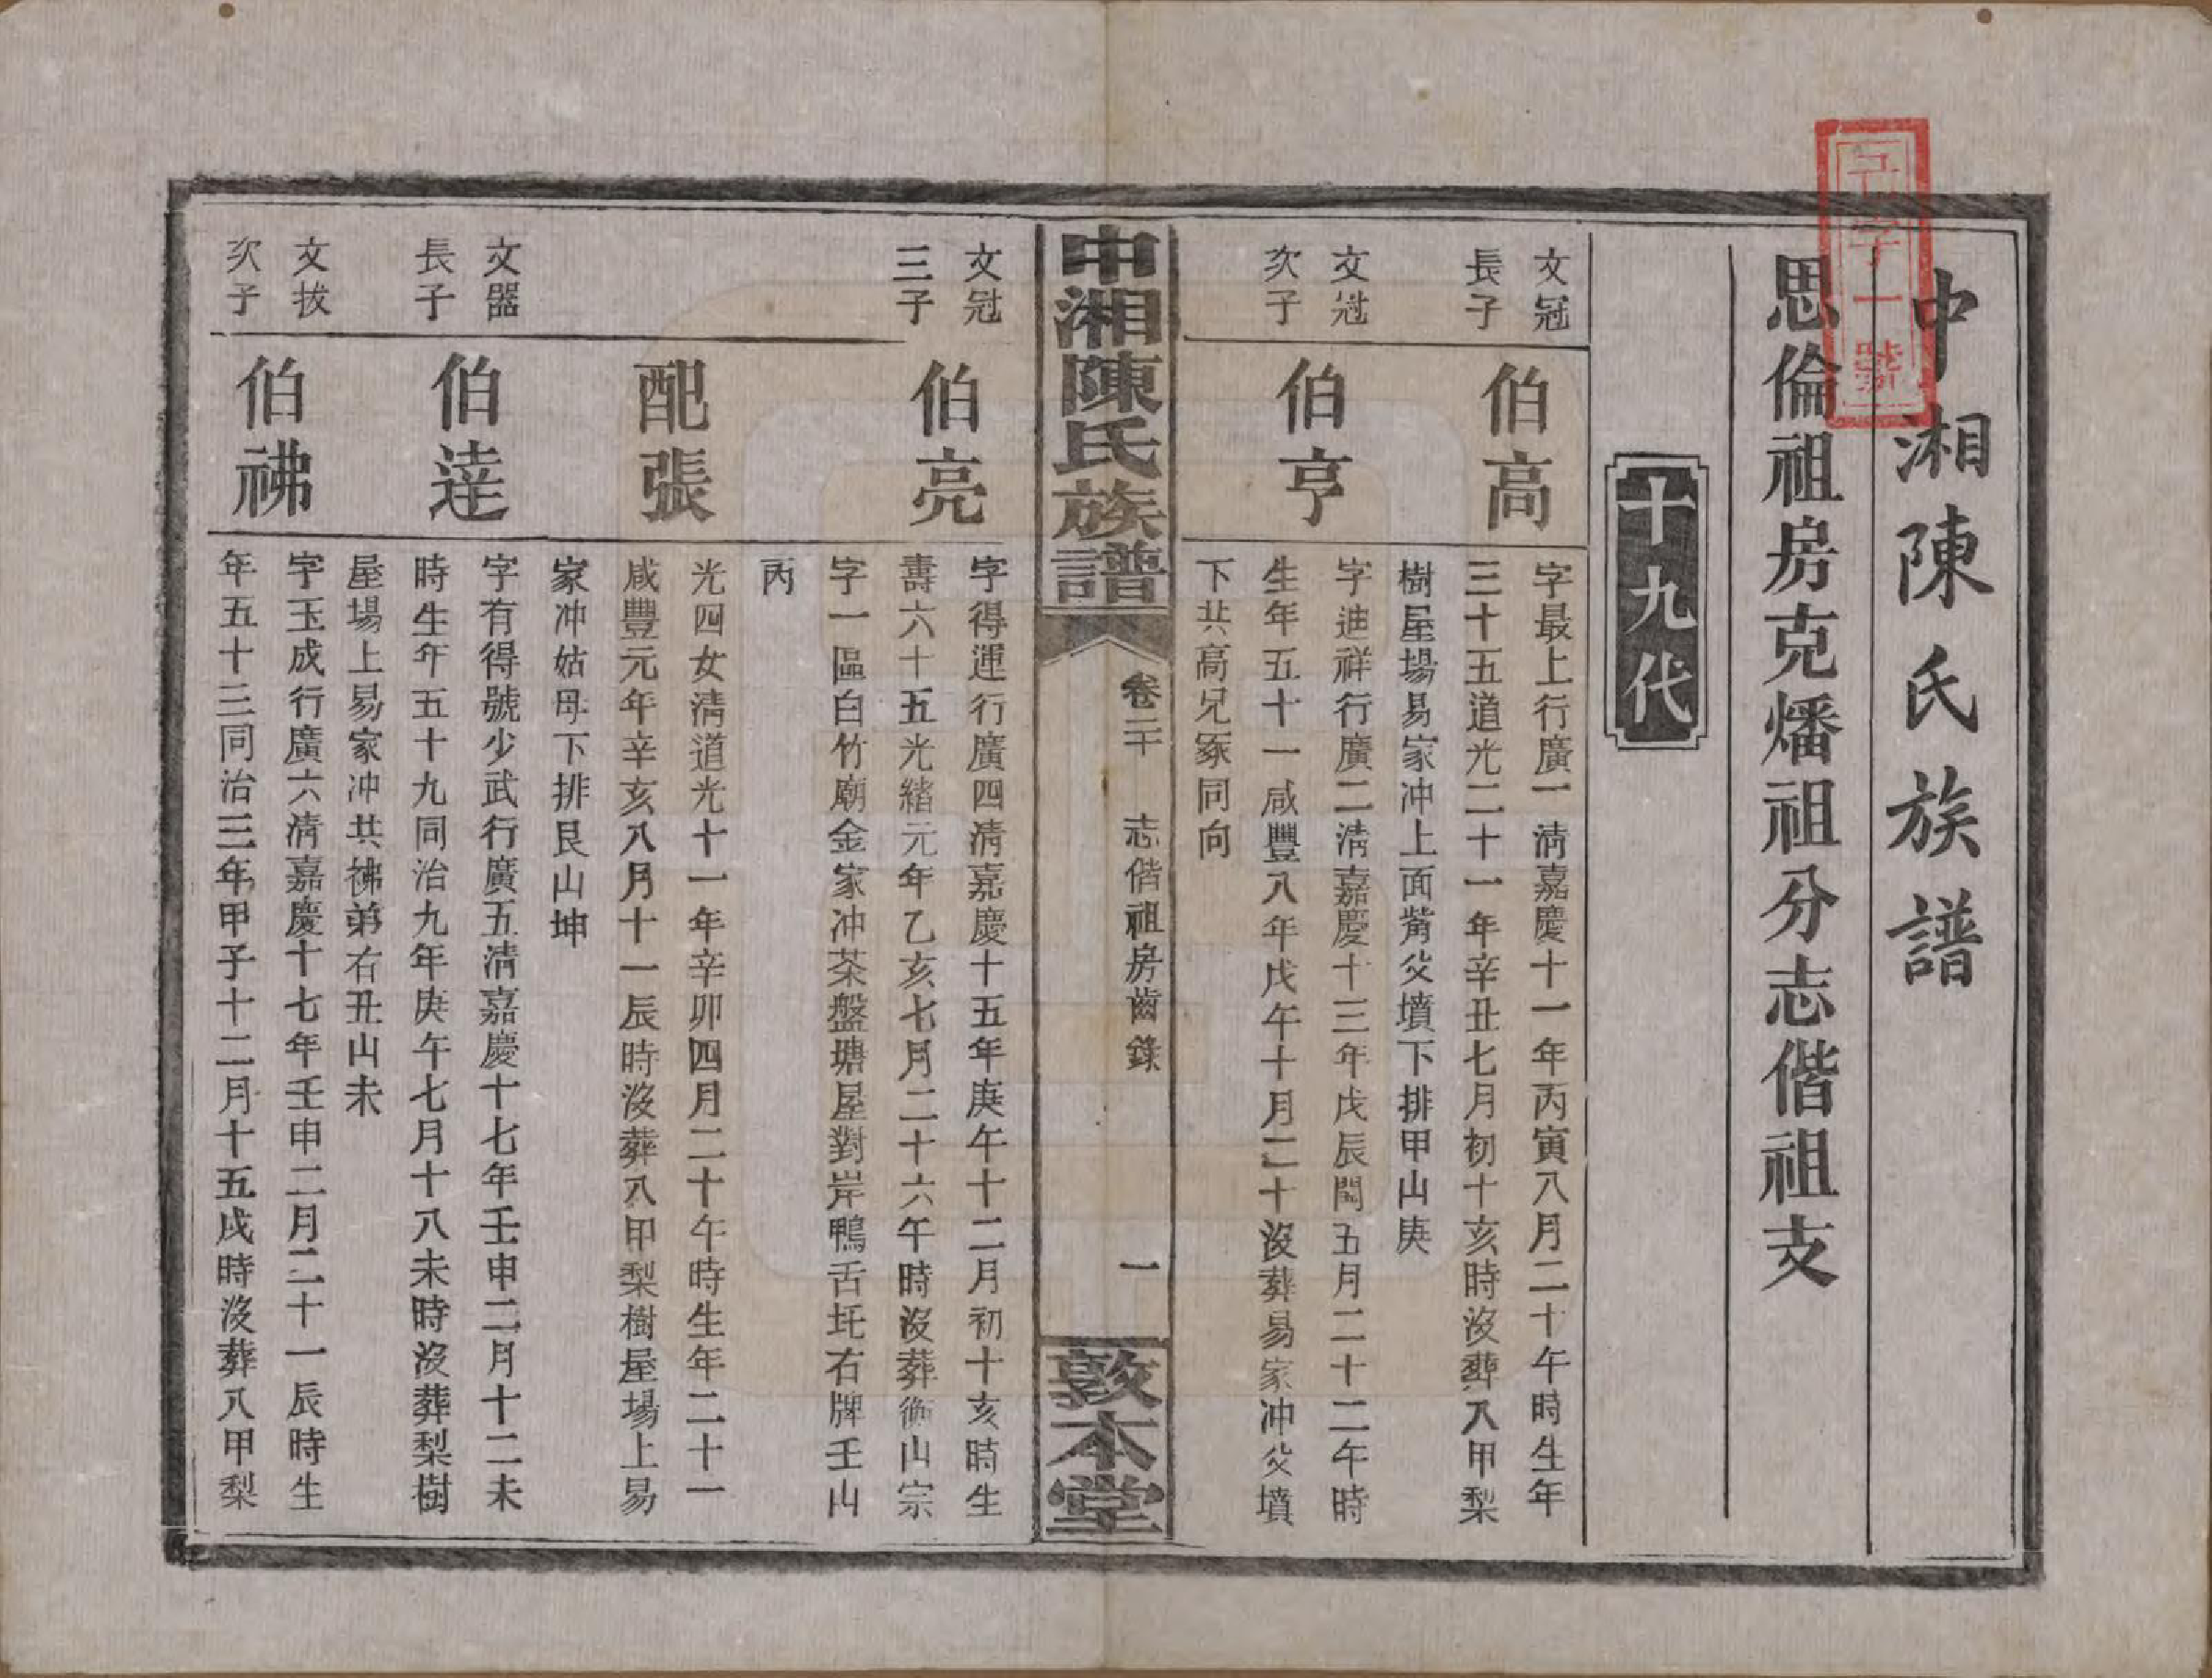 中湘陳氏族譜
思倫祖房克燔祖分志偕祖支
十九代
文冠
長子
伯高
字最上行廣一清嘉慶十一年丙寅八月二十午時生年
三十五道光二十一年辛丑七月初十亥時沒葬八甲梨
樹屋場易家冲上面觜父墳下排甲山庚
文冠
次子
伯亨
字迪祥行廣二清嘉慶十三年戊辰閏五月二十二午時
生年五十一咸豐八年戊午十月二十沒葬易家冲父墳
下共高兄冢同向
中湘陳氏族譜
卷二十 志偕祖房齒錄 一
敦本堂
文冠
三子
伯亮
字得運行廣四清嘉慶十五年庚午十二月初十亥時生
壽六十五光緒元年乙亥七月二十六午時沒葬衡山宗
字一區白竹廟金家冲茶盤塘屋對岸鴨舌圫右牌壬山
丙
配張
光四女清道光十一年辛卯四月二十午時生年二十一
咸豐元年辛亥八月十一辰時沒葬八甲梨樹屋場上易
家冲姑母下排艮山坤
文器
長子
伯逹
字有得號少武行廣五清嘉慶十七年壬申二月十二未
時生年五十九同治九年庚午七月十八未時沒葬梨樹
屋場上易家冲共祓弟右丑山未
文拔
次子
伯祓
字玉成行廣六清嘉慶十七年壬申二月二十一辰時生
年五十三同治三年甲子十二月十五戌時沒葬八甲梨
字一號